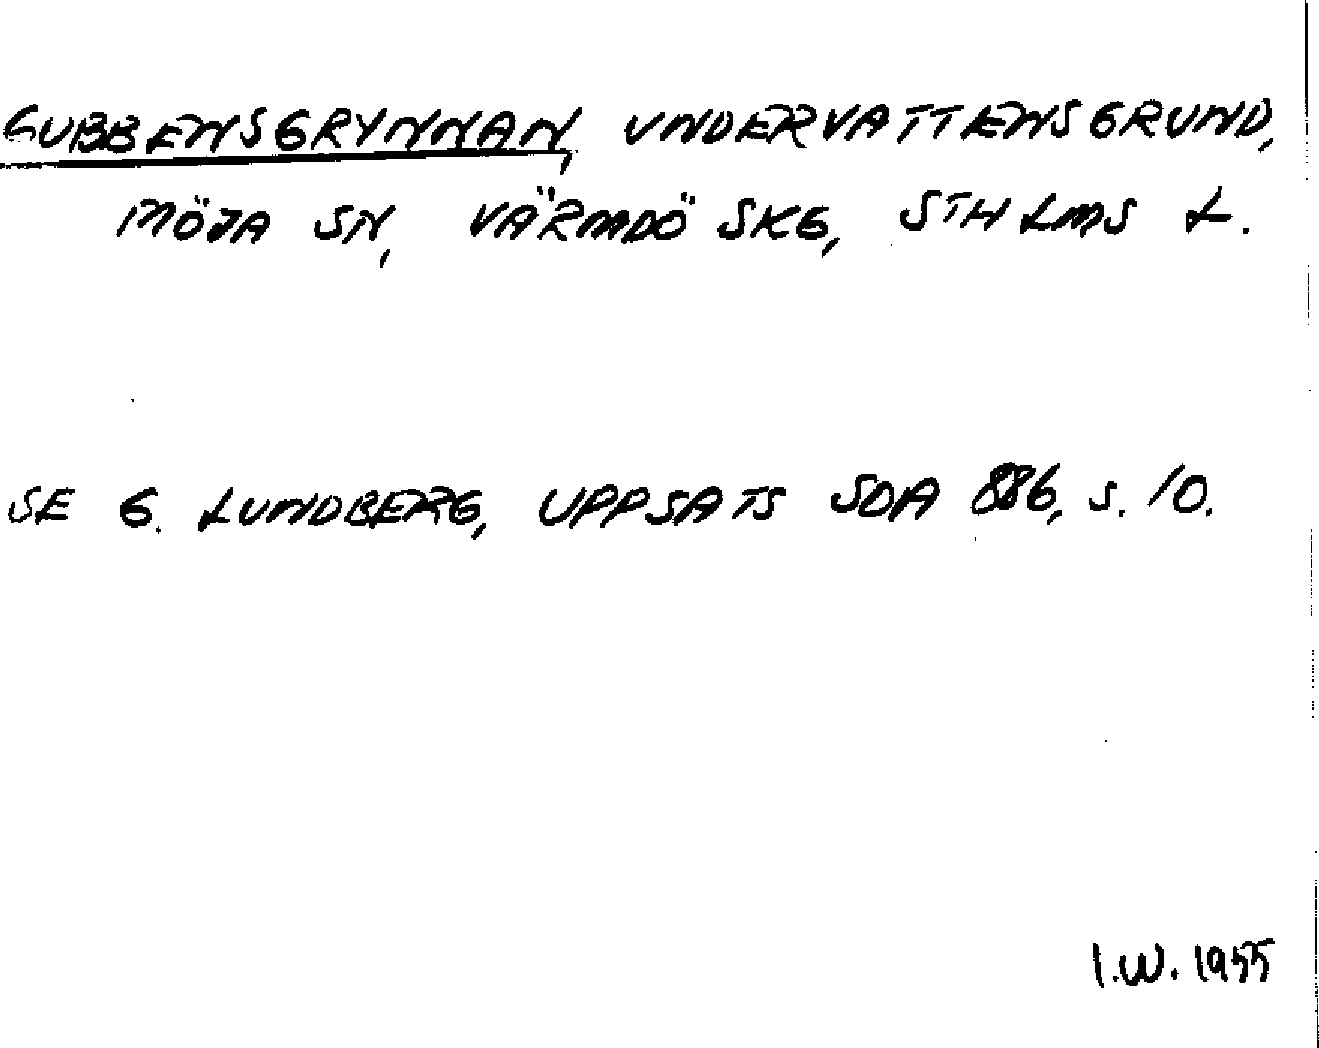 GUBBENSGRYNNAN, UNDERVATTENSGRUND,
MÖJA SN, VÄRMDÖ SKG, STHLMS L.
SE G. LUNDBERG, UPPSATS SOA 886, S. 10.
I.W. 1955